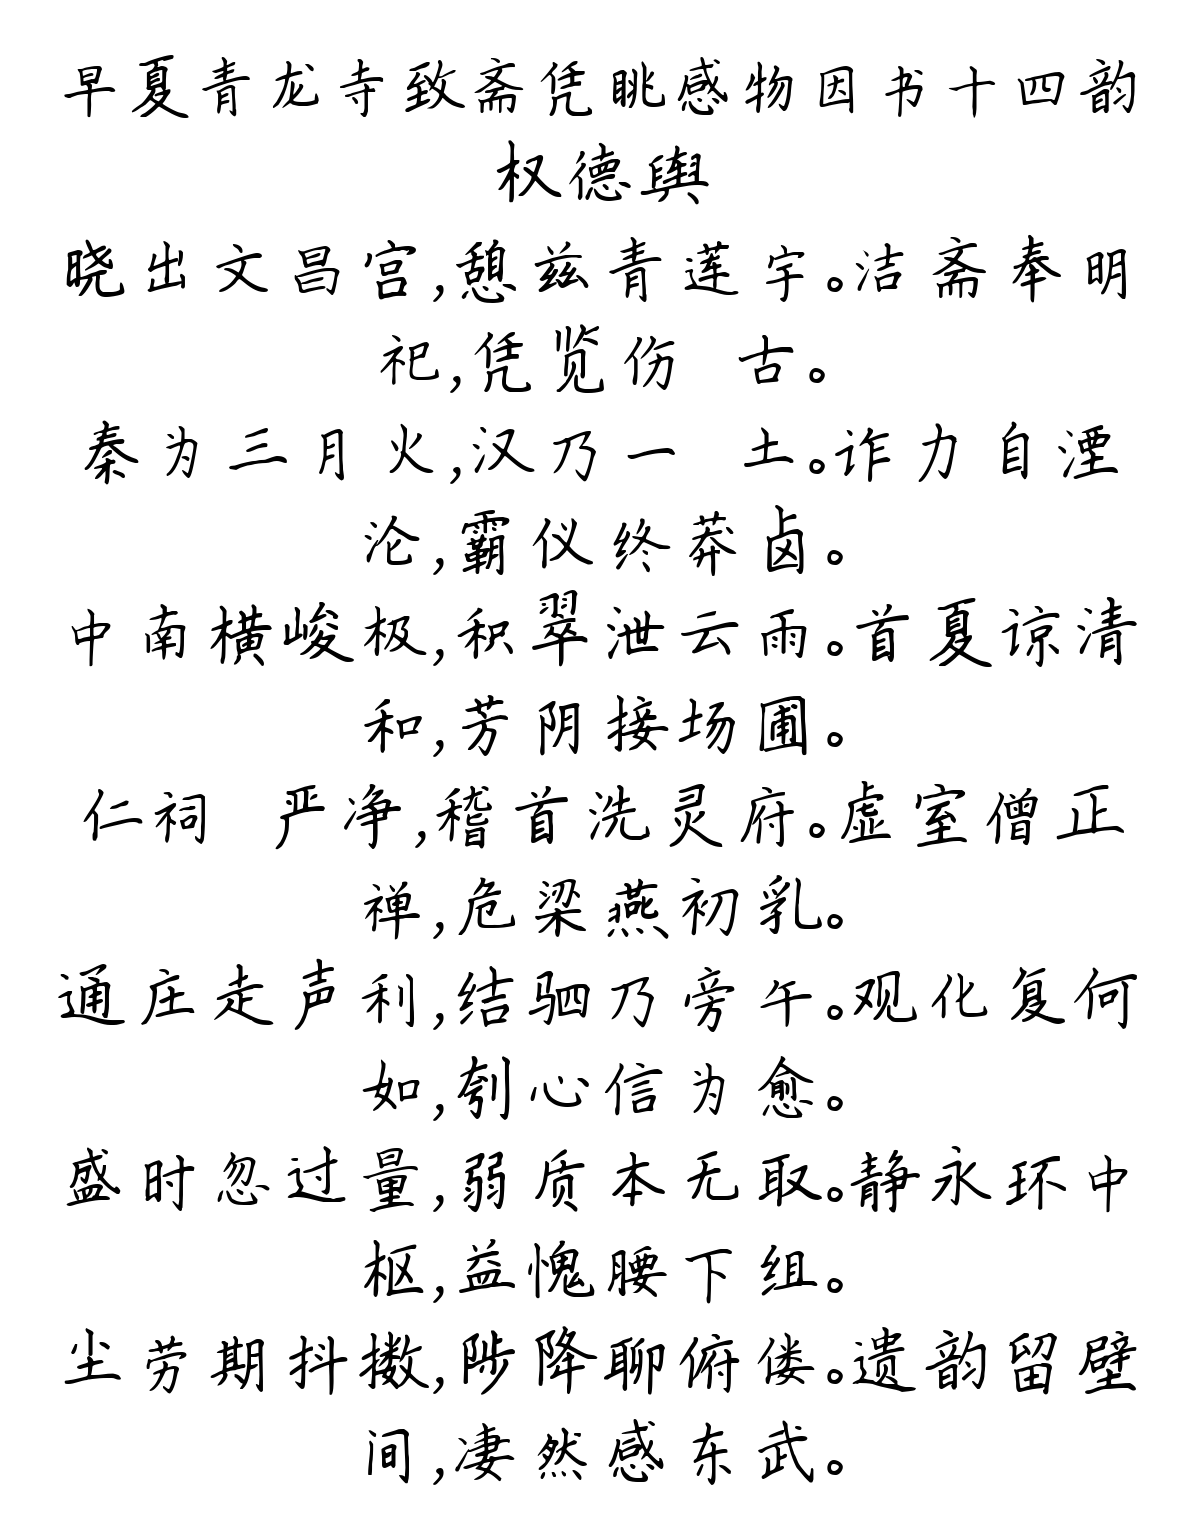 早夏青龙寺致斋凭眺感物因书十四韵
权德舆
晓出文昌宫,憩兹青莲宇。洁斋奉明
祀,凭览伤 古。
秦为三月火,汉乃一 土。诈力自湮
沦,霸仪终莽卤。
中南横峻极,积翠泄云雨。首夏谅清
和,芳阴接场圃。
仁祠 严净,稽首洗灵府。虚室僧正
禅,危梁燕初乳。
通庄走声利,结驷乃旁午。观化复何
如,刳心信为愈。
盛时忽过量,弱质本无取。静永环中
枢,益愧腰下组。
尘劳期抖擞,陟降聊俯偻。遗韵留壁
间,凄然感东武。